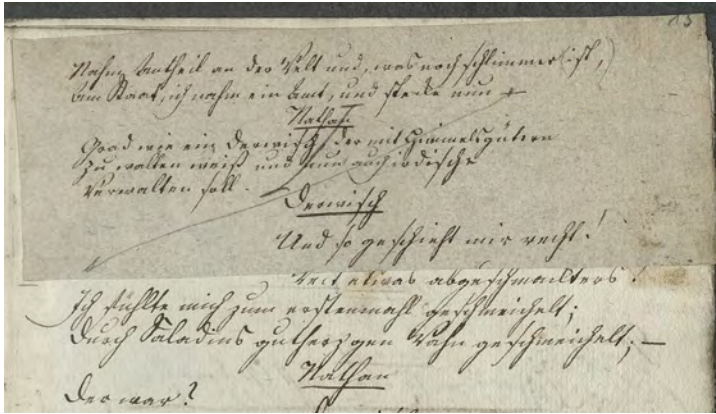 13
Nahm Antheil an der Welt und, was noch schlimmer ist,)
Am Staat, ich nahm ein Amt, und stecke nun
Nathan
Grad wie ein Derwisch der mit Himmelsgütern
Zu wallen weiß und nun auch irdische
Verwalten soll.
Derwisch
Und so geschieht mir recht!
etwas abgeschmackters!
Ich fühlte mich zum erstenmahl geschmeichelt;
Durch Saladins gutherzgen Wahn geschmeichelt; —
Nathan
Der war?